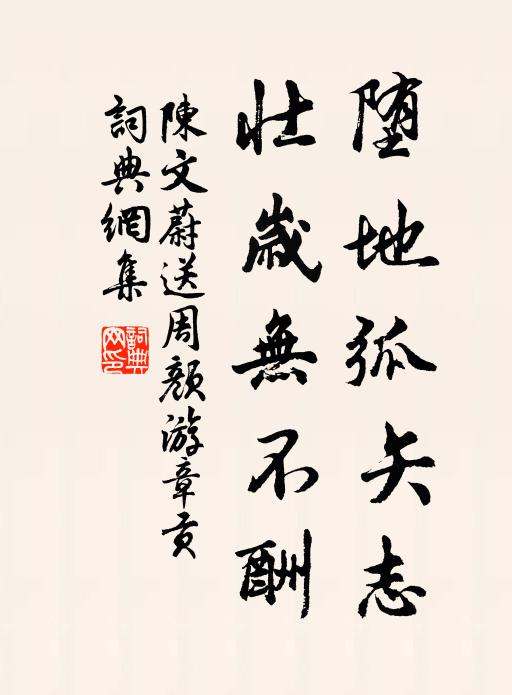 堕地弧矢志
壮歲無不酬
陳文蔚送周顏游章贡
詞典網集
詞典网印